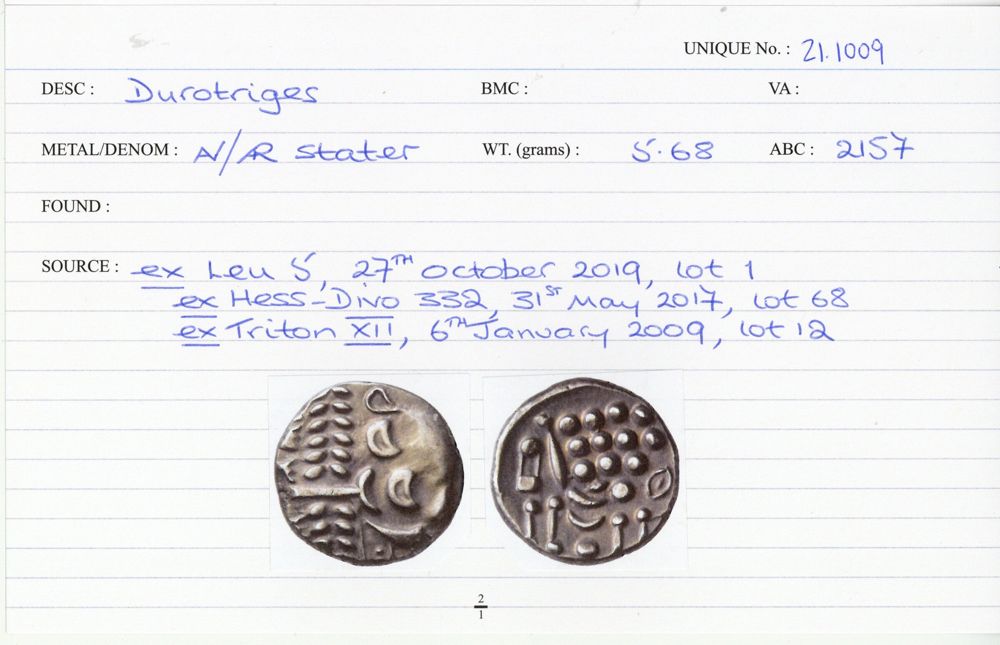 UNIQUE No. : 21.1009
DESC : Durotriges BMC : VA :
METAL/DENOM : AV/AR stater WT. (grams) : 5.68 ABC : 2157
FOUND :
SOURCE : ex Leu 5, 27TH October 2019, lot 1
ex Hess-Divo 332, 31ST May 2017, lot 68
ex Triton XII, 6TH January 2009, lot 12
2
1